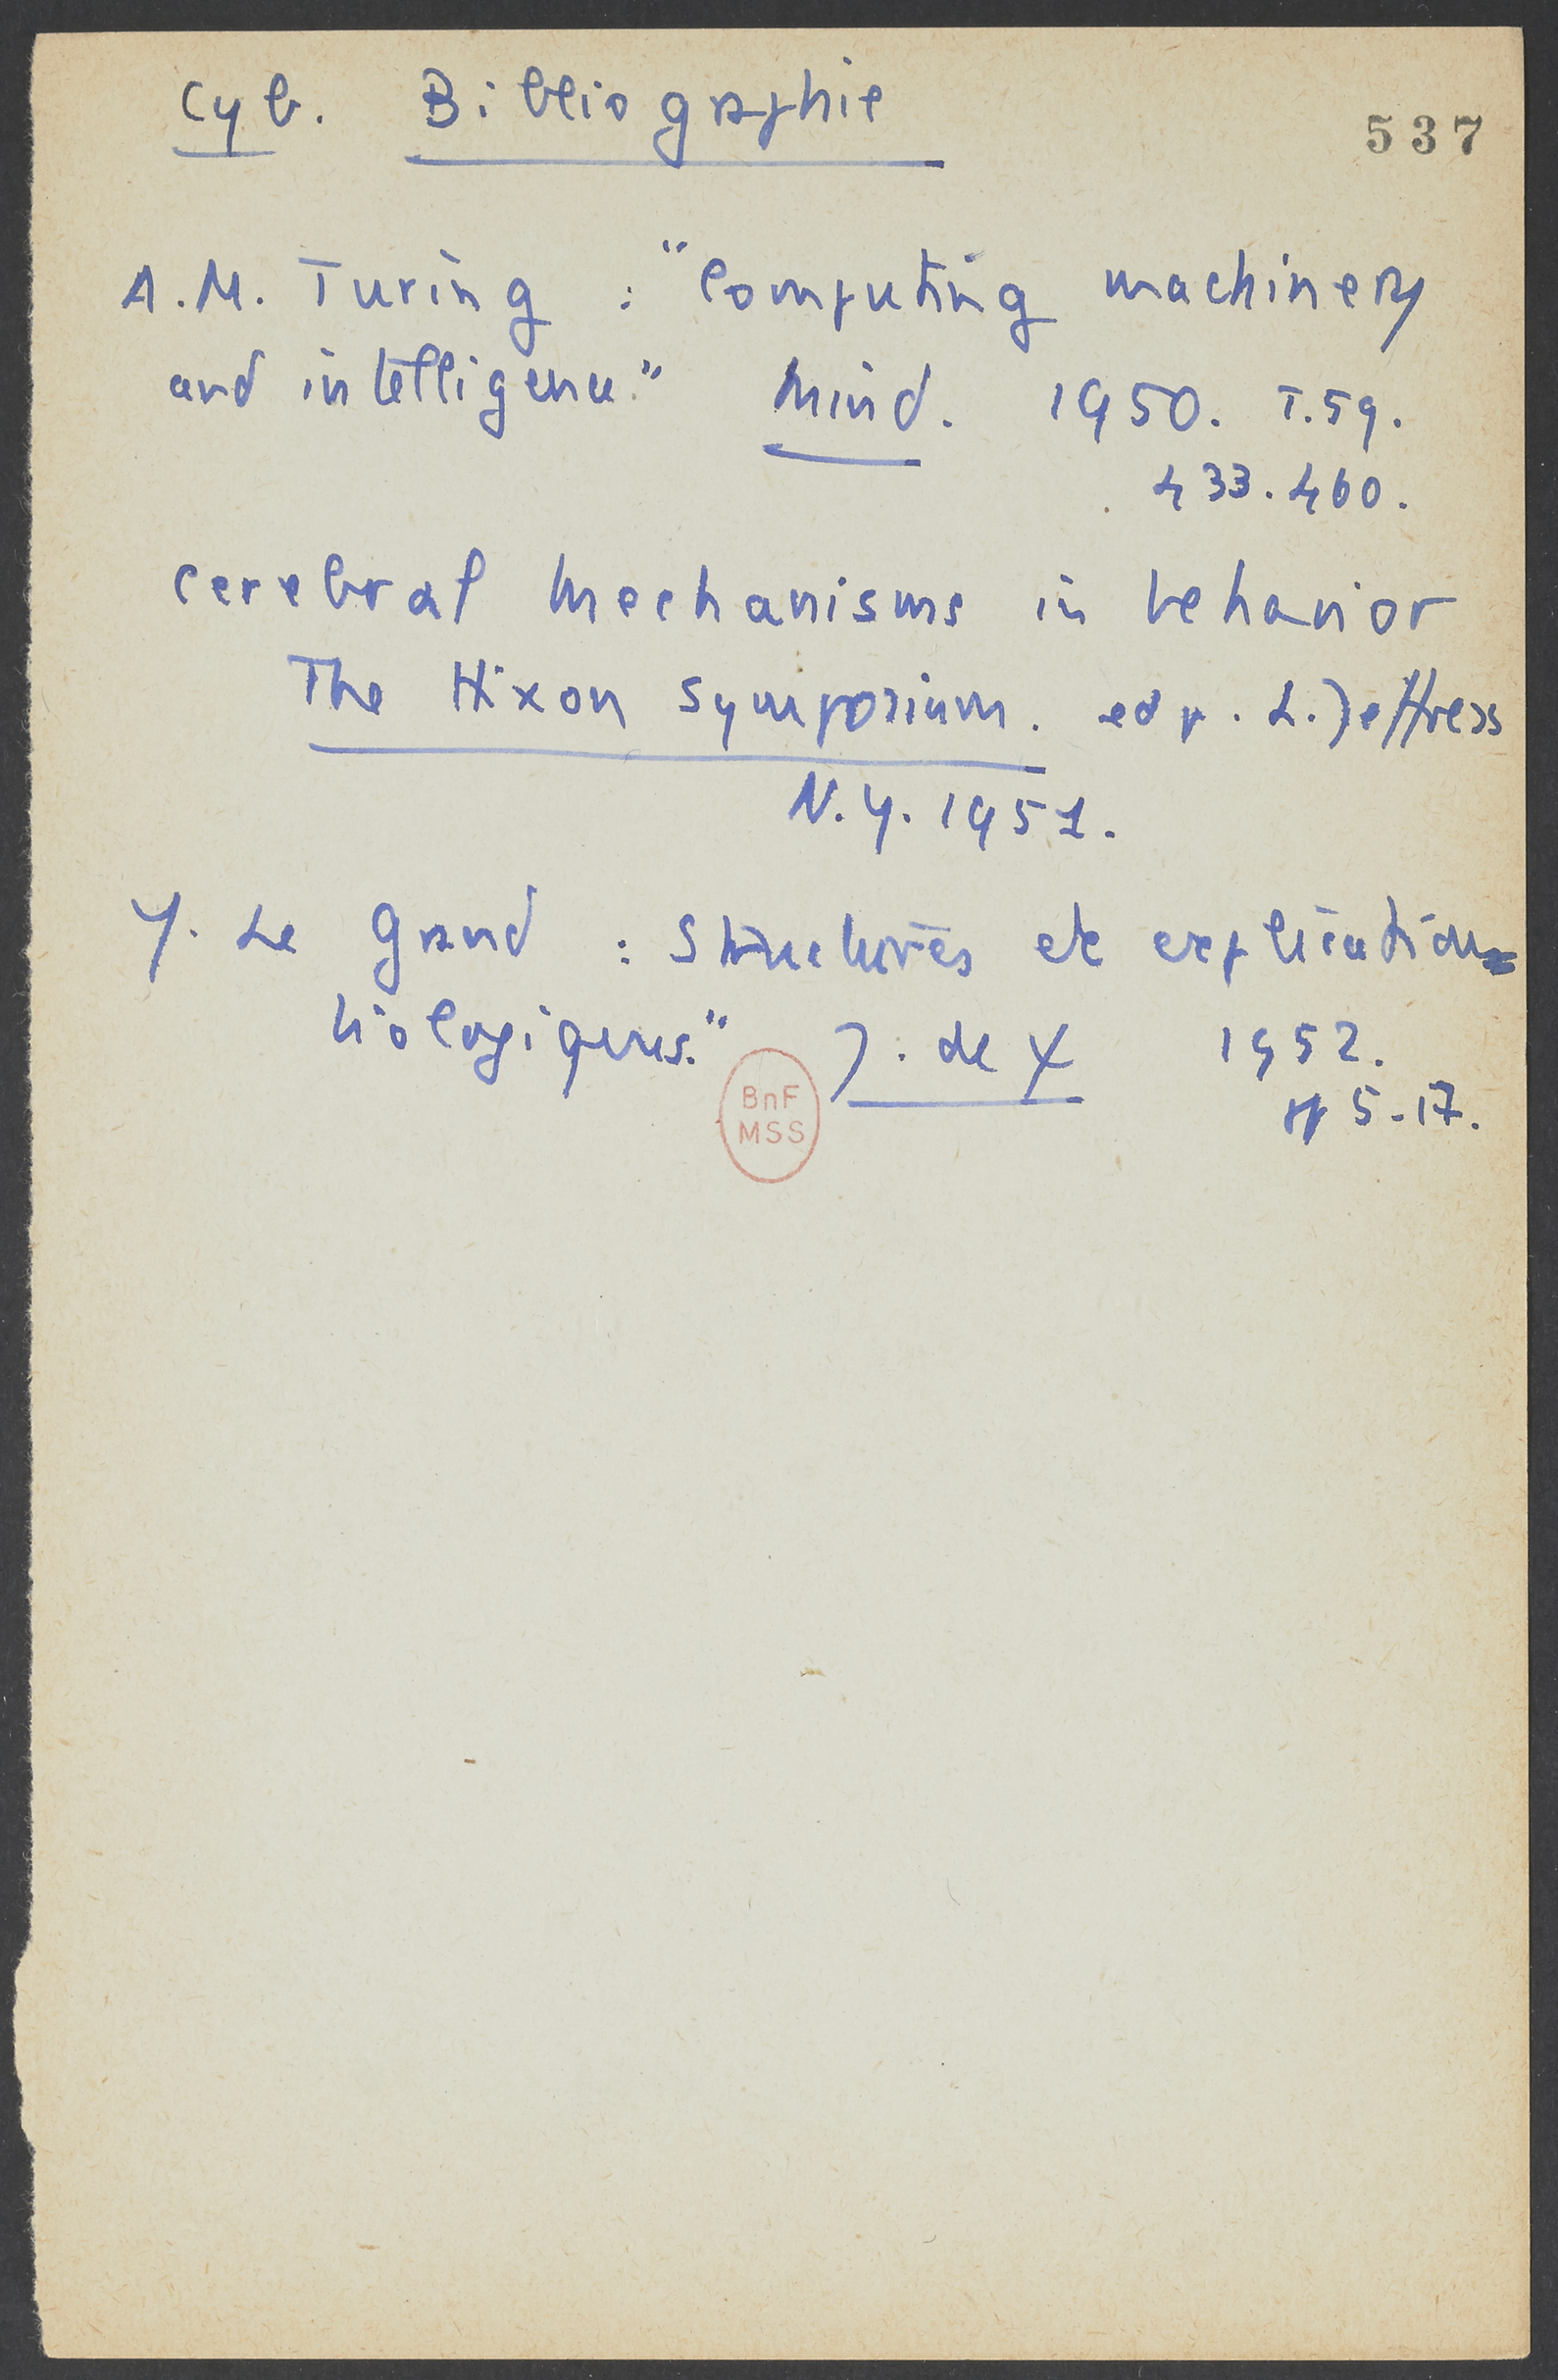 Cyb. Bibliographie
537
A.M. Turing : "Computing machinery
and intelligence." Mind. 1950. T.59.
433.460.
Cerebral Mechanisms in behavior
The Hixon Symposium. ed p. L. Jeffress
N.Y. 1951.
Y. Le Grand : Structures et explication
biologiques." J. de ψ 1952.
pp 5-17.
BnF
MSS